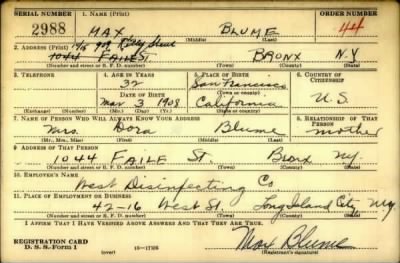 SERIAL NUMBER 1. NAME (Print) ORDER NUMBER
2988 MAX BLUME 44
(First) (Middle) (Last)
2. ADDRESS (Print) 909 Street
1044 FAILE ST. BRONX N.Y.
(Number and street or R. F. D. number) (Town) (County) (State)
3. TELEPHONE 4. AGE IN YEARS 5. PLACE OF BIRTH 6. COUNTRY OF CITIZENSHIP
32 San Francisco
DATE OF BIRTH (Town or county)
Mar 3 1908 California U.S.
(Exchange) (Number) (Mo.) (Day) (Yr.) (State or country)
7. NAME OF PERSON WHO WILL ALWAYS KNOW YOUR ADDRESS 8. RELATIONSHIP OF THAT PERSON
Mrs. Dora Blume mother
(Mr., Mrs., Miss) (First) (Middle) (Last)
9. ADDRESS OF THAT PERSON
1044 FAILE St. Bronx N.Y.
(Number and street or R. F. D. number) (Town) (County) (State)
10. EMPLOYER'S NAME
West Disinfecting Co
11. PLACE OF EMPLOYMENT OR BUSINESS
42-16 West St. Long Island City N.Y.
(Number and street or R. F. D. number) (Town) (County) (State)
I AFFIRM THAT I HAVE VERIFIED ABOVE ANSWERS AND THAT THEY ARE TRUE.
REGISTRATION CARD
D. S. S. Form 1 16—17105 Max Blume
(Registrant's signature)